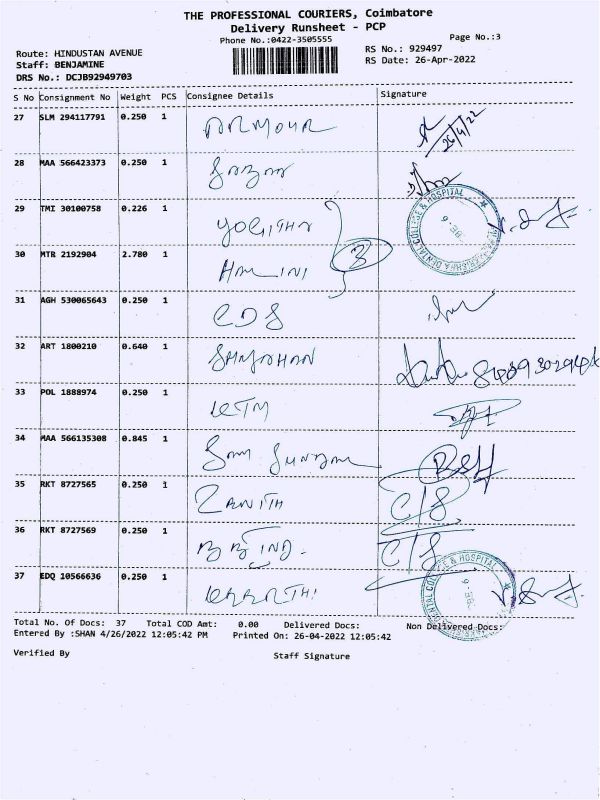 THE PROFESSIONAL COURIERS, Coimbatore
Delivery Runsheet - PCP
Phone No.:0422-3505555
Page No.:3
Route: HINDUSTAN AVENUE
RS No.: 929497
Staff: BENJAMINE
RS Date: 26-Apr-2022
DRS No.: DCJB92949703
S No Consignment No Weight PCS Consignee Details Signature
27 SLM 294117791 0.250 1 ARMOUR 26/4/22
28 MAA 566423373 0.250 1
29 TMI 30100758 0.226 1 YOGITHA
30 MTR 2192904 2.780 1 HARINI 3
31 AGH 530065643 0.250 1 CDS
32 ART 1800210 0.640 1 SHAJAHAN
33 POL 1888974 0.250 1 KTM
34 MAA 566135308 0.845 1 Sam
35 RKT 8727565 0.250 1 ZANITH C/S
36 RKT 8727569 0.250 1 IND. C/S
37 EDQ 10566636 0.250 1 KEERTHI
DENTAL COLLEGE & HOSPITAL
Total No. Of Docs: 37 Total COD Amt: 0.00 Delivered Docs: Non Delivered Docs:
Entered By :SHAN 4/26/2022 12:05:42 PM Printed On: 26-04-2022 12:05:42
Verified By Staff Signature